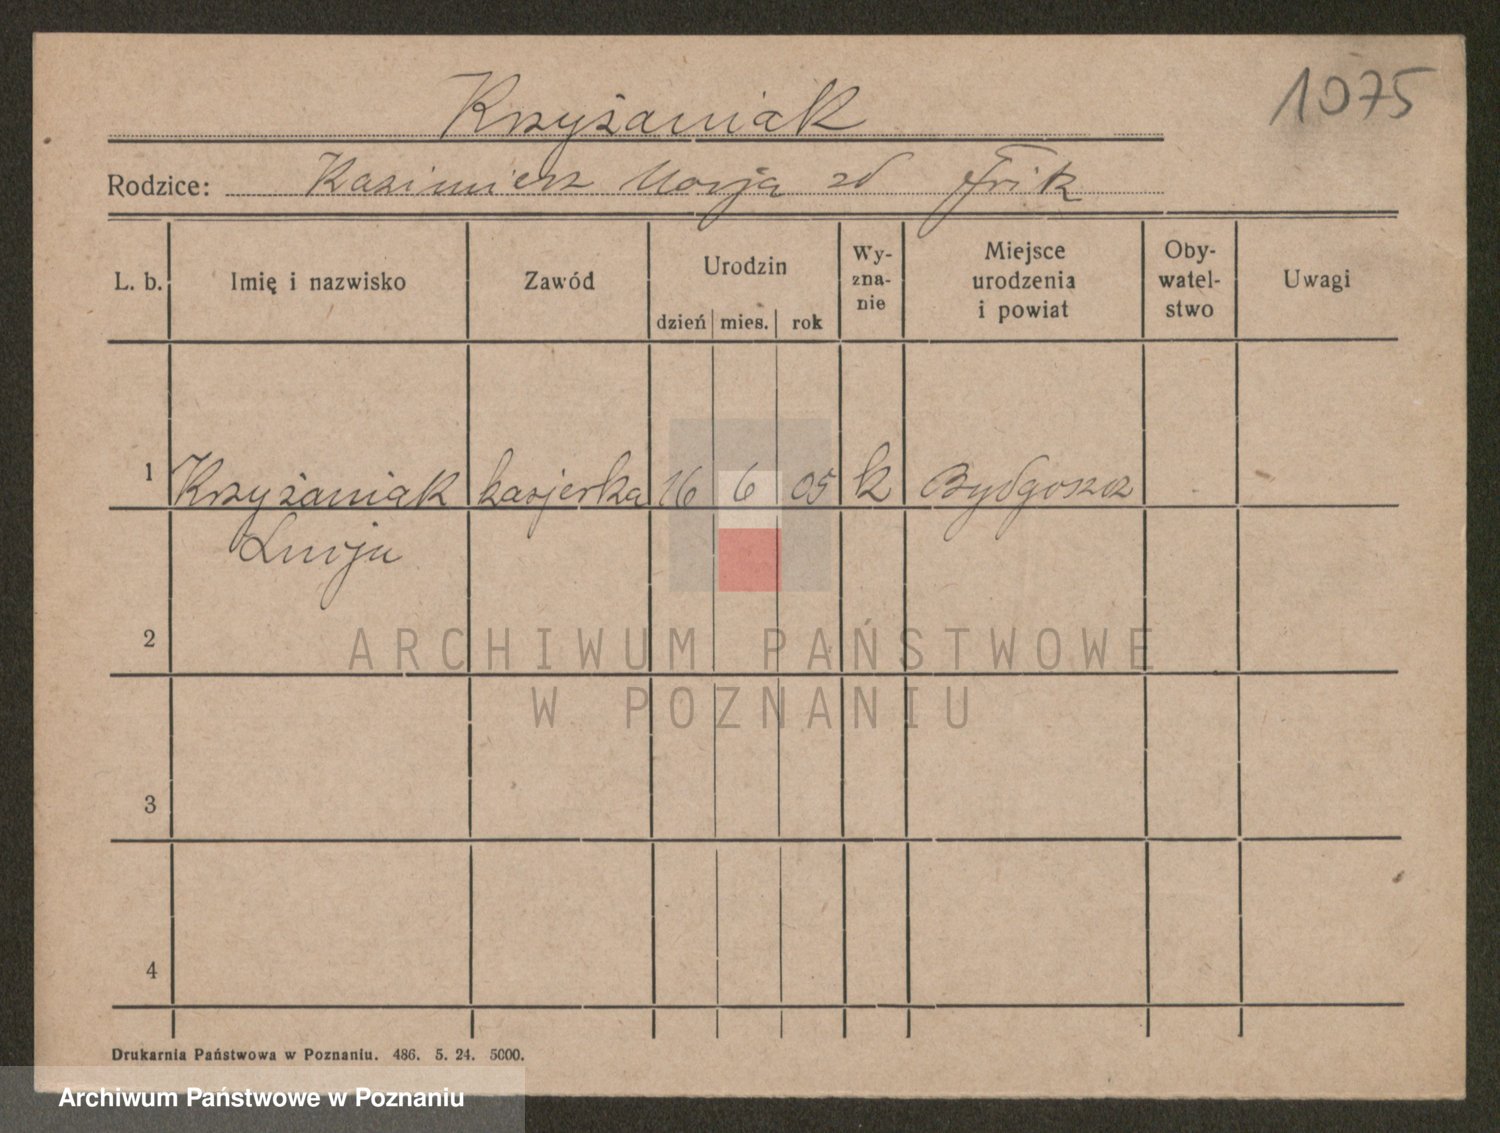 1075
Krzyżaniak
Rodzice: Kazimierz Marja zd Frik
L. b.
Imię i nazwisko
Zawód
Urodzin
dzień mies. rok
Wy-
zna-
nie
Miejsce
urodzenia
i powiat
Oby-
watel-
stwo
Uwagi
1 Krzyżaniak kasjerka 16 6 05 k Bydgoszcz
2
ARCHIWUM PAŃSTWOWE
W POZNANIU
3
4
Drukarnia Państwowa w Poznaniu. 486. 5. 24. 5000.
Archiwum Państwowe w Poznaniu